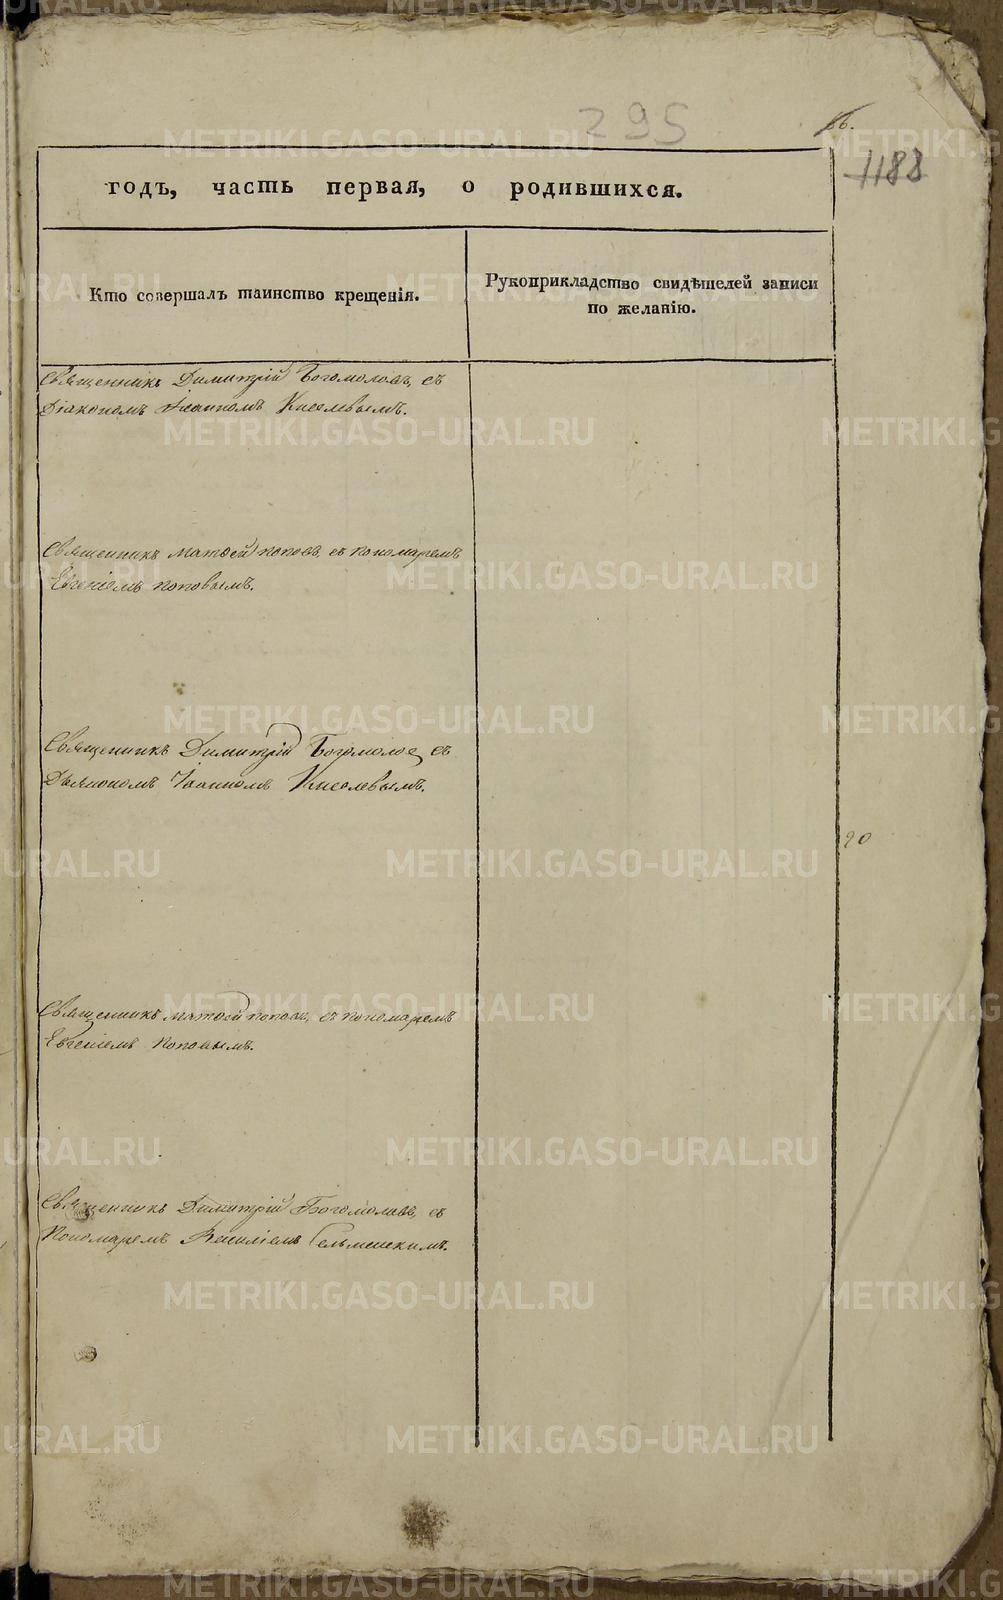 295
66.
1188
годъ, часть первая, о родившихся.
Кто совершалъ таинство крещенія.
Рукоприкладство свидѣтелей записи
по желанію.
Священникъ Димитрій Богомоловъ, съ
Діакономъ Іоанномъ Киселевымъ.
Священникъ Матѳей Поповъ, съ пономаремъ
Евгеніемъ Поповымъ.
Священникъ Димитрій Богомолов съ
Дьякономъ Іоанномъ Киселевымъ.
20
Священникъ Матѳей Поповъ, съ пономаремъ
Евгеніемъ Поповымъ.
Священникъ Димитрій Богомоловъ, съ
Пономаремъ Василіемъ
METRIKI.GASO-URAL.RU